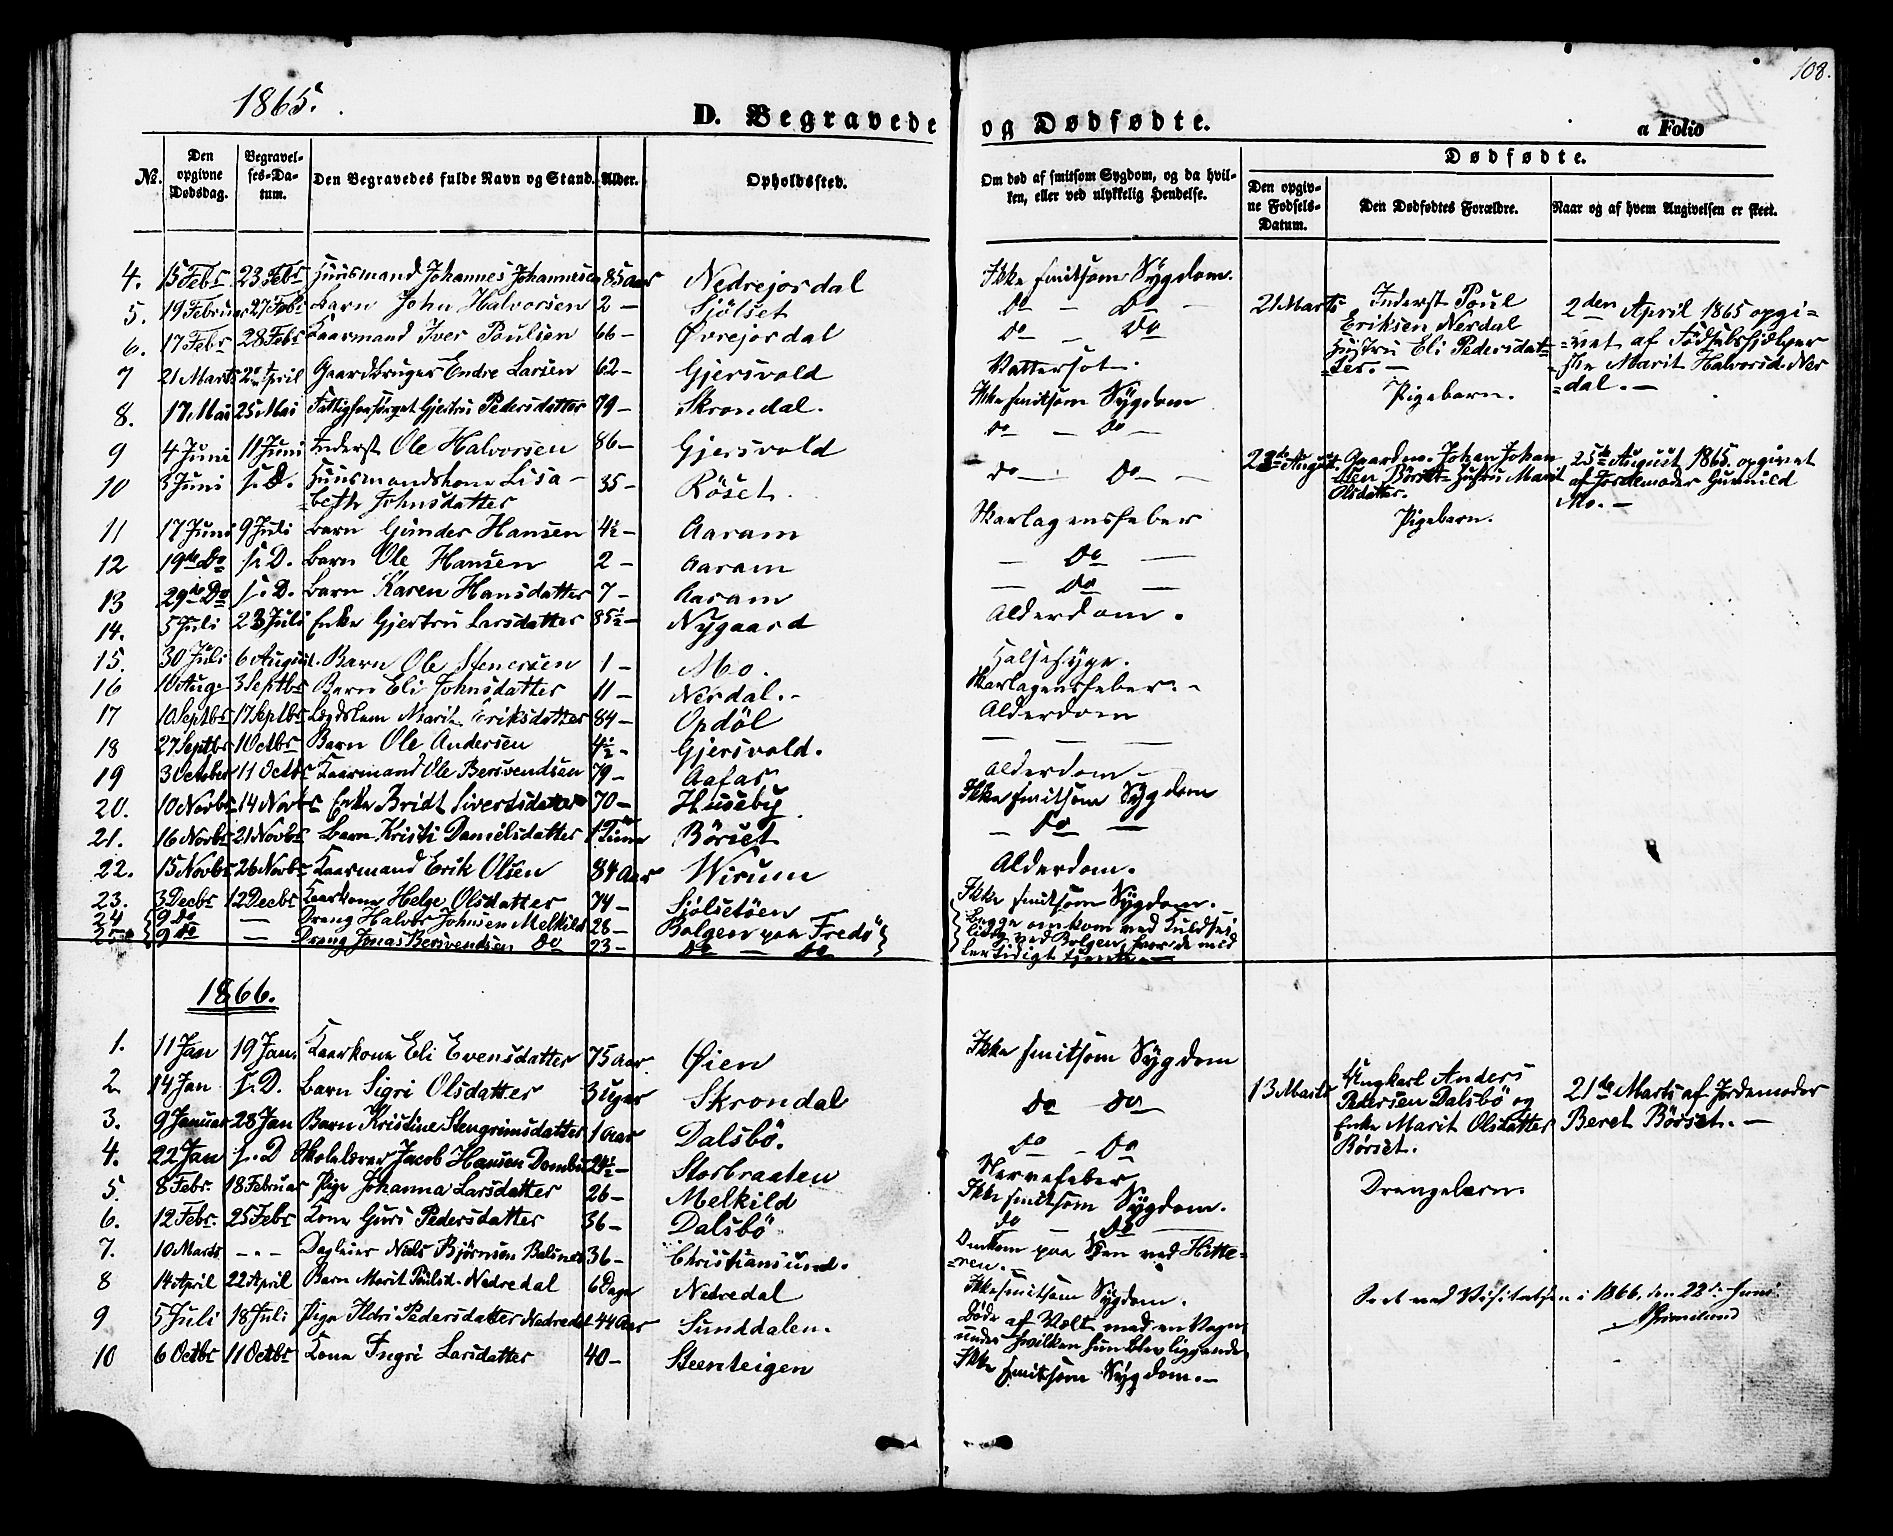 1865.
108.
D. Begravede og Dødfødte.
a Folio
No.
Den opgivne Dødsdag.
Begravelses-Datum.
Den Begravedes fulde Navn og Stand.
Alder.
Opholdssted.
Om død af smitsom Sygdom, og da hvilken, eller ved ulykkelig Hendelse.
Dødfødte.
Den opgivne Fødsels-Datum.
Den Dødfødtes Forældre.
Naar og af hvem Angivelsen er skeet.
4. 15 Febr 23 Febr Huusmand Johannes Johannesen 85 Aar Nedrejordal Ikke smitsom Sygdom.
5. 19 Februar 27 Febr Barn John Halvorsen 2 — Sjølset Do — Do —
6. 17 Febr 28 Febr Kaarmand Iver Poulsen 66 — Øvrejordal Do — Do
7 21 Marts 2den April Gaardbruger Endre Larsen 62 — Gjersvold Vattersot.
8. 17 Mai 25 Mai Fattigforsørget Gjertru Pedersdatter 79 — Skrondal. Ikke smitsom Sygdom
9 4 Juni 11 Juni Inderst Ole Halvorsen 86 — Gjersvold Do — Do —
10 3 Juni s. D. Huusmandskone Lisa-
beth Johnsdatter 35 — Röset. Do — Do —
11 17 Juni 9 Juli Barn Gunder Hansen 4½ — Aaram Skarlagensfeber
12 19de Do s. D. Barn Ole Hansen 2 — Aaram — Do —
13 29de Do s. D. Barn Karen Hansdatter 7 — Aaram — Do —
14. 5 Juli 23 Juli Enke Gjertru Larsdatter 85½ — Nygaard Alderdom.
15. 30 Juli 6 August. Barn Ole Stenersen 1 — Mo. Halssyge.
16 10 Aug. 3 Septbr Barn Eli Johnsdatter 11 — Nerdal. — Skarlagensfeber. —
17 10 Septbr 17 Septbr Lægdslem Marit Eriksdatter 84 — Opdöl Alderdom
18 27 Septbr 1 Octbr Barn Ole Andersen 4½ — Gjersvold. — — —
19 3 October 11 Octbr Kaarmand Ole Bersvendsen 79 — Aafar Alderdom —
20. 10 Novbr 14 Novbr Enke Bridt Sivertsdatter 70 — Huseby Ikke smitsom Sygdom
21. 16 Novbr 21 Novbr Barn Kristi Danielsdatter 1 Time Börset — Do —
22. 15 Novbr 26 Novbr Kaarmand Erik Olsen 84 Aar Wirum Alderdom.
23. 3 Decbr 12 Decbr Kaarkone Helge Olsdatter 74 — Sjölsetöen Ikke smitsom Sygdom.
24 9 Do — Dreng Halvor Johnsen Melkild 28 — Bolgen paa Fredö Begge omkom ved Kuldsei-
25 9 Do — Dreng Jonas Bersvendsen Do 23 — Do — Do ling ved Bolgen, hvor de mid
lertidigt tjente. —
21 Marts
Inderst Poul
Eriksen Nerdal
Hustru Eli Pedersdat-
ter. —
Pigebarn.
2den April 1865 opgi-
vet af Fødselshjælper
ske Marit Halvorsd. Ner
dal. —
August.
Gaardm. Johan Johan
sen Börset Hustru Marit
Olsdatter.
Pigebarn.
25de August 1865. opgivet
af Jordemoder Gunnild
Mo. —
1866.
1. 11 Jan 19 Jan. Kaarkone Eli Evensdatter 75 Aar. Øien Ikke smitsom Sygdom
2 14 Jan s. D. Barn Sigri Olsdatter 3 Uger Skrondal Do Do
3. 9 Januar 28 Jan Barn Kristine Stengrimsdatter 1 Aar Dalsbö. Do — Do
4. 22 Jan s. D Skolelærer Jacob Hansen 24½ — Storbraaten Nervefeber
5. 8 Febr. 18 Februar Pige Johanna Larsdatter 26 — Melkild Ikke smitsom Sygdom.
6. 12 Febr. 25 Febr Kone Guri Pedersdatter 36 — Dalsbö Do — Do —
7. 10 Marts — " — Dagleier Niels Bjørnsen 36 — Christiansund. Omkom paa Söen ved Hitte-
ren. —
8 14 April 22 April Barn Marit Poulsd. Nedredal 6 Dage Nedredal Ikke smitsom Sygdom.
9 5 Juli 18 Juli Pige Ildri Pedersdatter Nedredal 44 Aar Sunddalen. Døde af Vælt med en Vogn
under hvilken hun blev liggende
10 6 Octbr 11 Octbr Kone Ingri Larsdatter 40 — Steenteigen Ikke smitsom Sygdom. —
13 Marts
Ungkarl Anders
Pedersen Dalsbö og
Enke Marit Olsdatter
Börset.
Drengebarn.
21de Marts af Jordemoder
Beret Börset. —
Seet ved Visitatsen i 1866, den 22de Juni